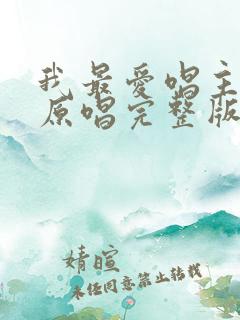 我最爱唱主
原唱完整版
婧暄
未经同意禁止转载